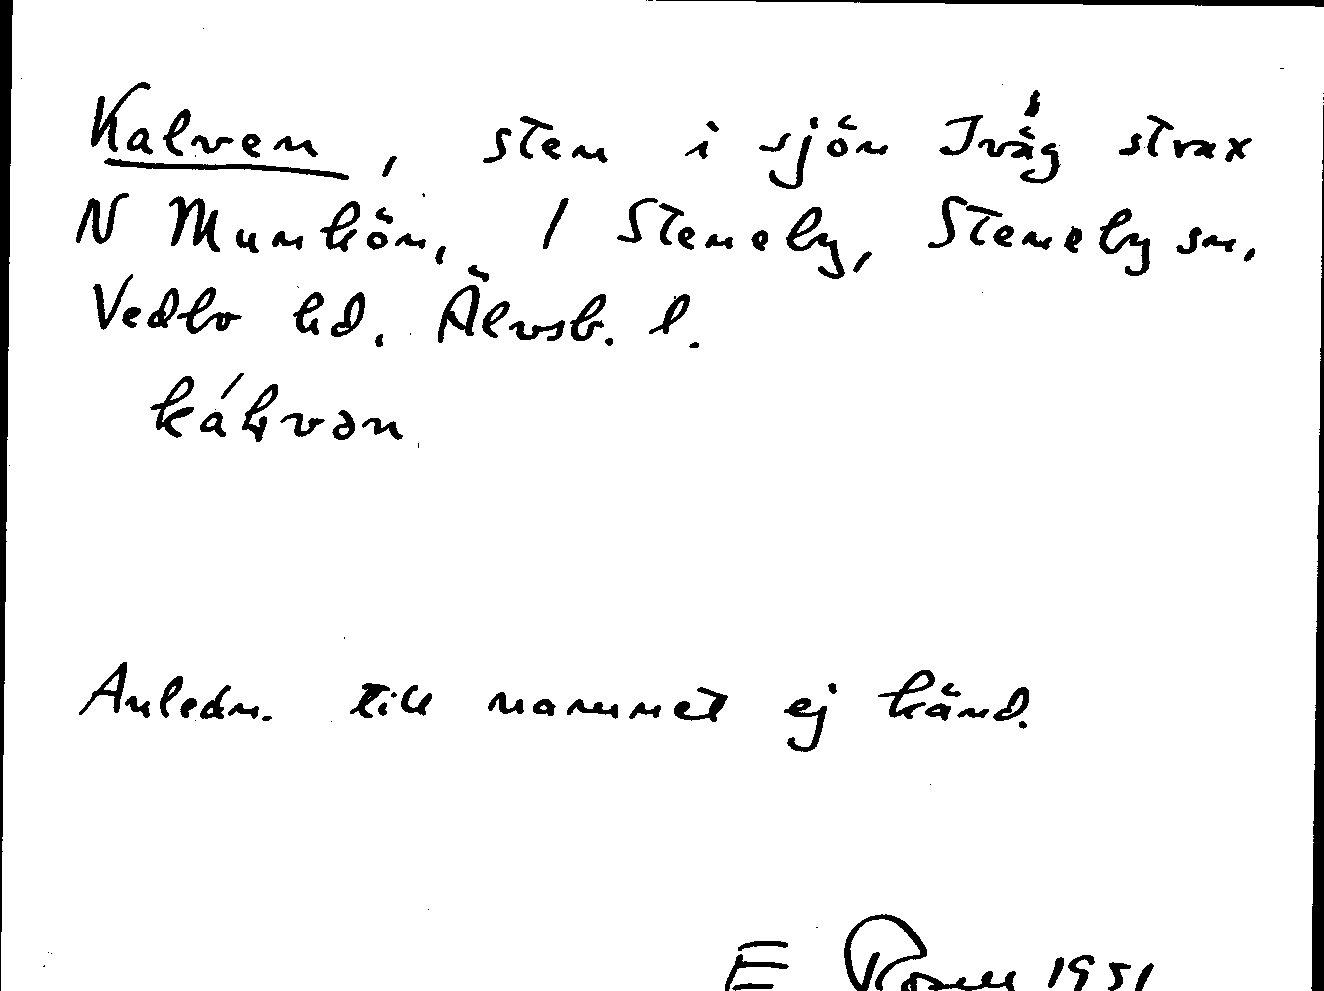 Kalven, sten i sjön Iväg strax
N Munkön, 1 Steneby, Steneby sn,
Vedbo hd. Älvsb. l.
Anledn. till namnet ej känd.
E Rosell 1951